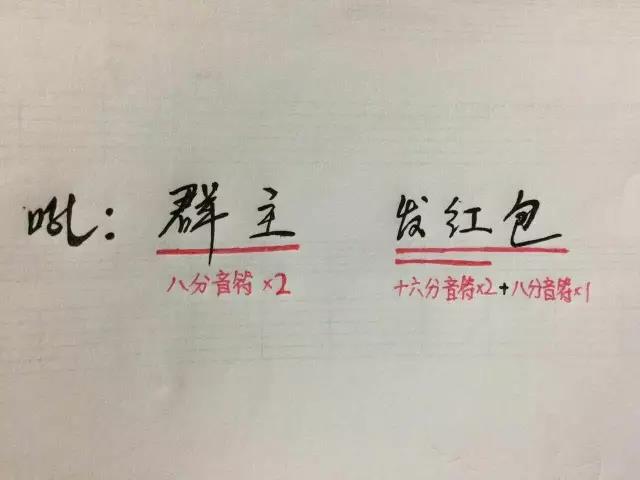 吼：群主 发红包
八分音符×2 十六分音符×2+八分音符×1